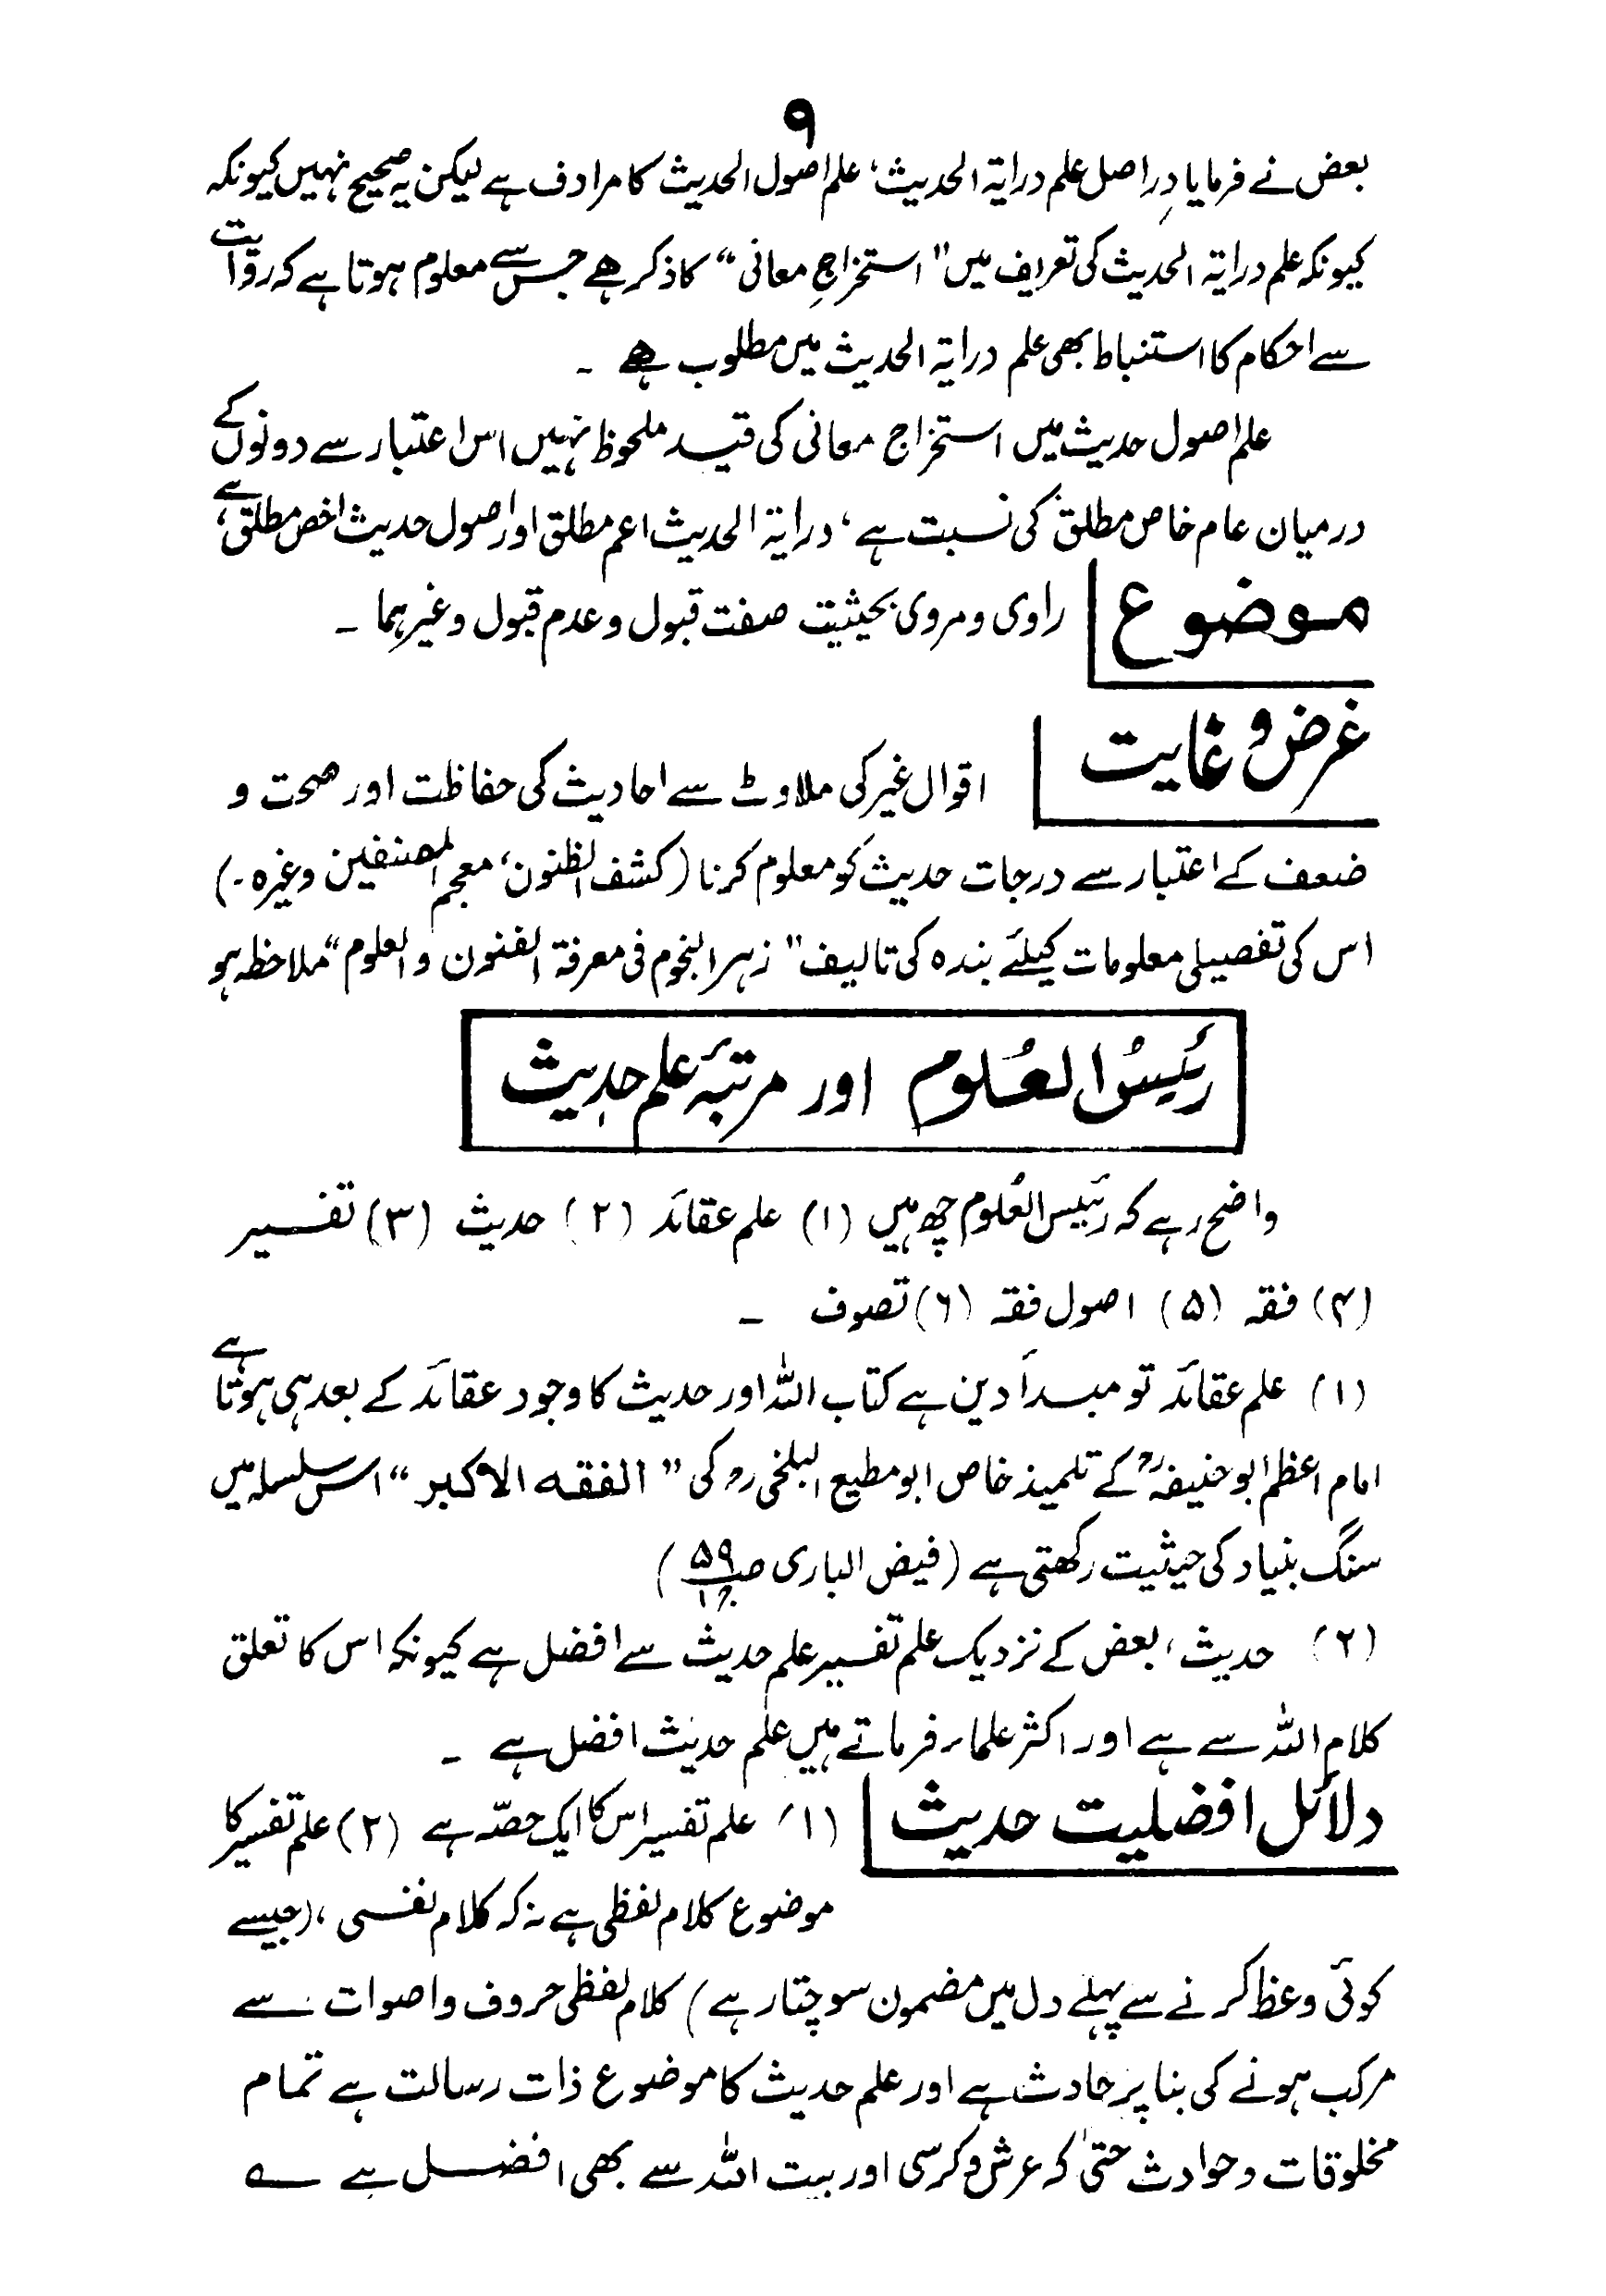 ۹
بعض نے فرمایا دراصل علم درایۃ الحدیث، علم اصول الحدیث کا مرادف ہے لیکن یہ صحیح نہیں کیونکہ
کیونکہ علم درایۃ الحدیث کی تعریف میں "استخراجِ معانی" کا ذکر ہے جس سے معلوم ہوتا ہے کہ روایت
سے احکام کا استنباط بھی علم درایۃ الحدیث میں مطلوب ہے ۔
علم اصول حدیث میں استخراج معانی کی قید ملحوظ نہیں اس اعتبار سے دونوں کے
درمیان عام خاص مطلق کی نسبت ہے، درایۃ الحدیث اعم مطلق اور اصول حدیث اخص مطلق ہے،
موضوع راوی و مروی بحیثیت صفت قبول و عدم قبول و غیرہما ۔
غرض و غایت اقوال غیر کی ملاوٹ سے احادیث کی حفاظت اور صحت و
ضعف کے اعتبار سے درجات حدیث کو معلوم کرنا (کشف الظنون، معجم المصنفین وغیرہ ۔)
اس کی تفصیلی معلومات کیلئے بندہ کی تالیف "زہر النجوم فی معرفۃ الفنون و العلوم" ملاحظہ ہو
رَئیسُ العُلوم اور مرتبۂ علم حدیث
واضح رہے کہ رئیس العُلوم چھ ہیں (۱) علم عقائد (۲) حدیث (۳) تفسیر
(۴) فقہ (۵) اصول فقہ (۶) تصوف ۔
(۱) علم عقائد تو مبدأ دین ہے کتاب اللہ اور حدیث کا وجود عقائد کے بعد ہی ہوتا ہے
امام اعظم ابو حنیفہؒ کے تلمیذ خاص ابو مطیع البلخیؒ کی "الفقہ الاکبر" اس سلسلہ میں
سنگ بنیاد کی حیثیت رکھتی ہے (فیض الباری صـ ۵۹ جـ ۱)
(۲) حدیث، بعض کے نزدیک علم تفسیر علم حدیث سے افضل ہے کیونکہ اس کا تعلق
کلام اللہ سے ہے اور اکثر علماء فرماتے ہیں علم حدیث افضل ہے ۔
دلائل افضلیت حدیث (۱) علم تفسیر اس کا ایک حصّہ ہے (۲) علم تفسیر کا
موضوع کلام لفظی ہے نہ کہ کلام نفسی، (جیسے
کوئی وعظ کرنے سے پہلے دل میں مضمون سوچتا رہے) کلام لفظی حروف و اصوات سے
مرکب ہونے کی بنا پر حادث ہے اور علم حدیث کا موضوع ذات رسالت ہے تمام
مخلوقات و حوادث حتیٰ کہ عرش و کرسی اور بیت اللہ سے بھی افضل ہے ؎